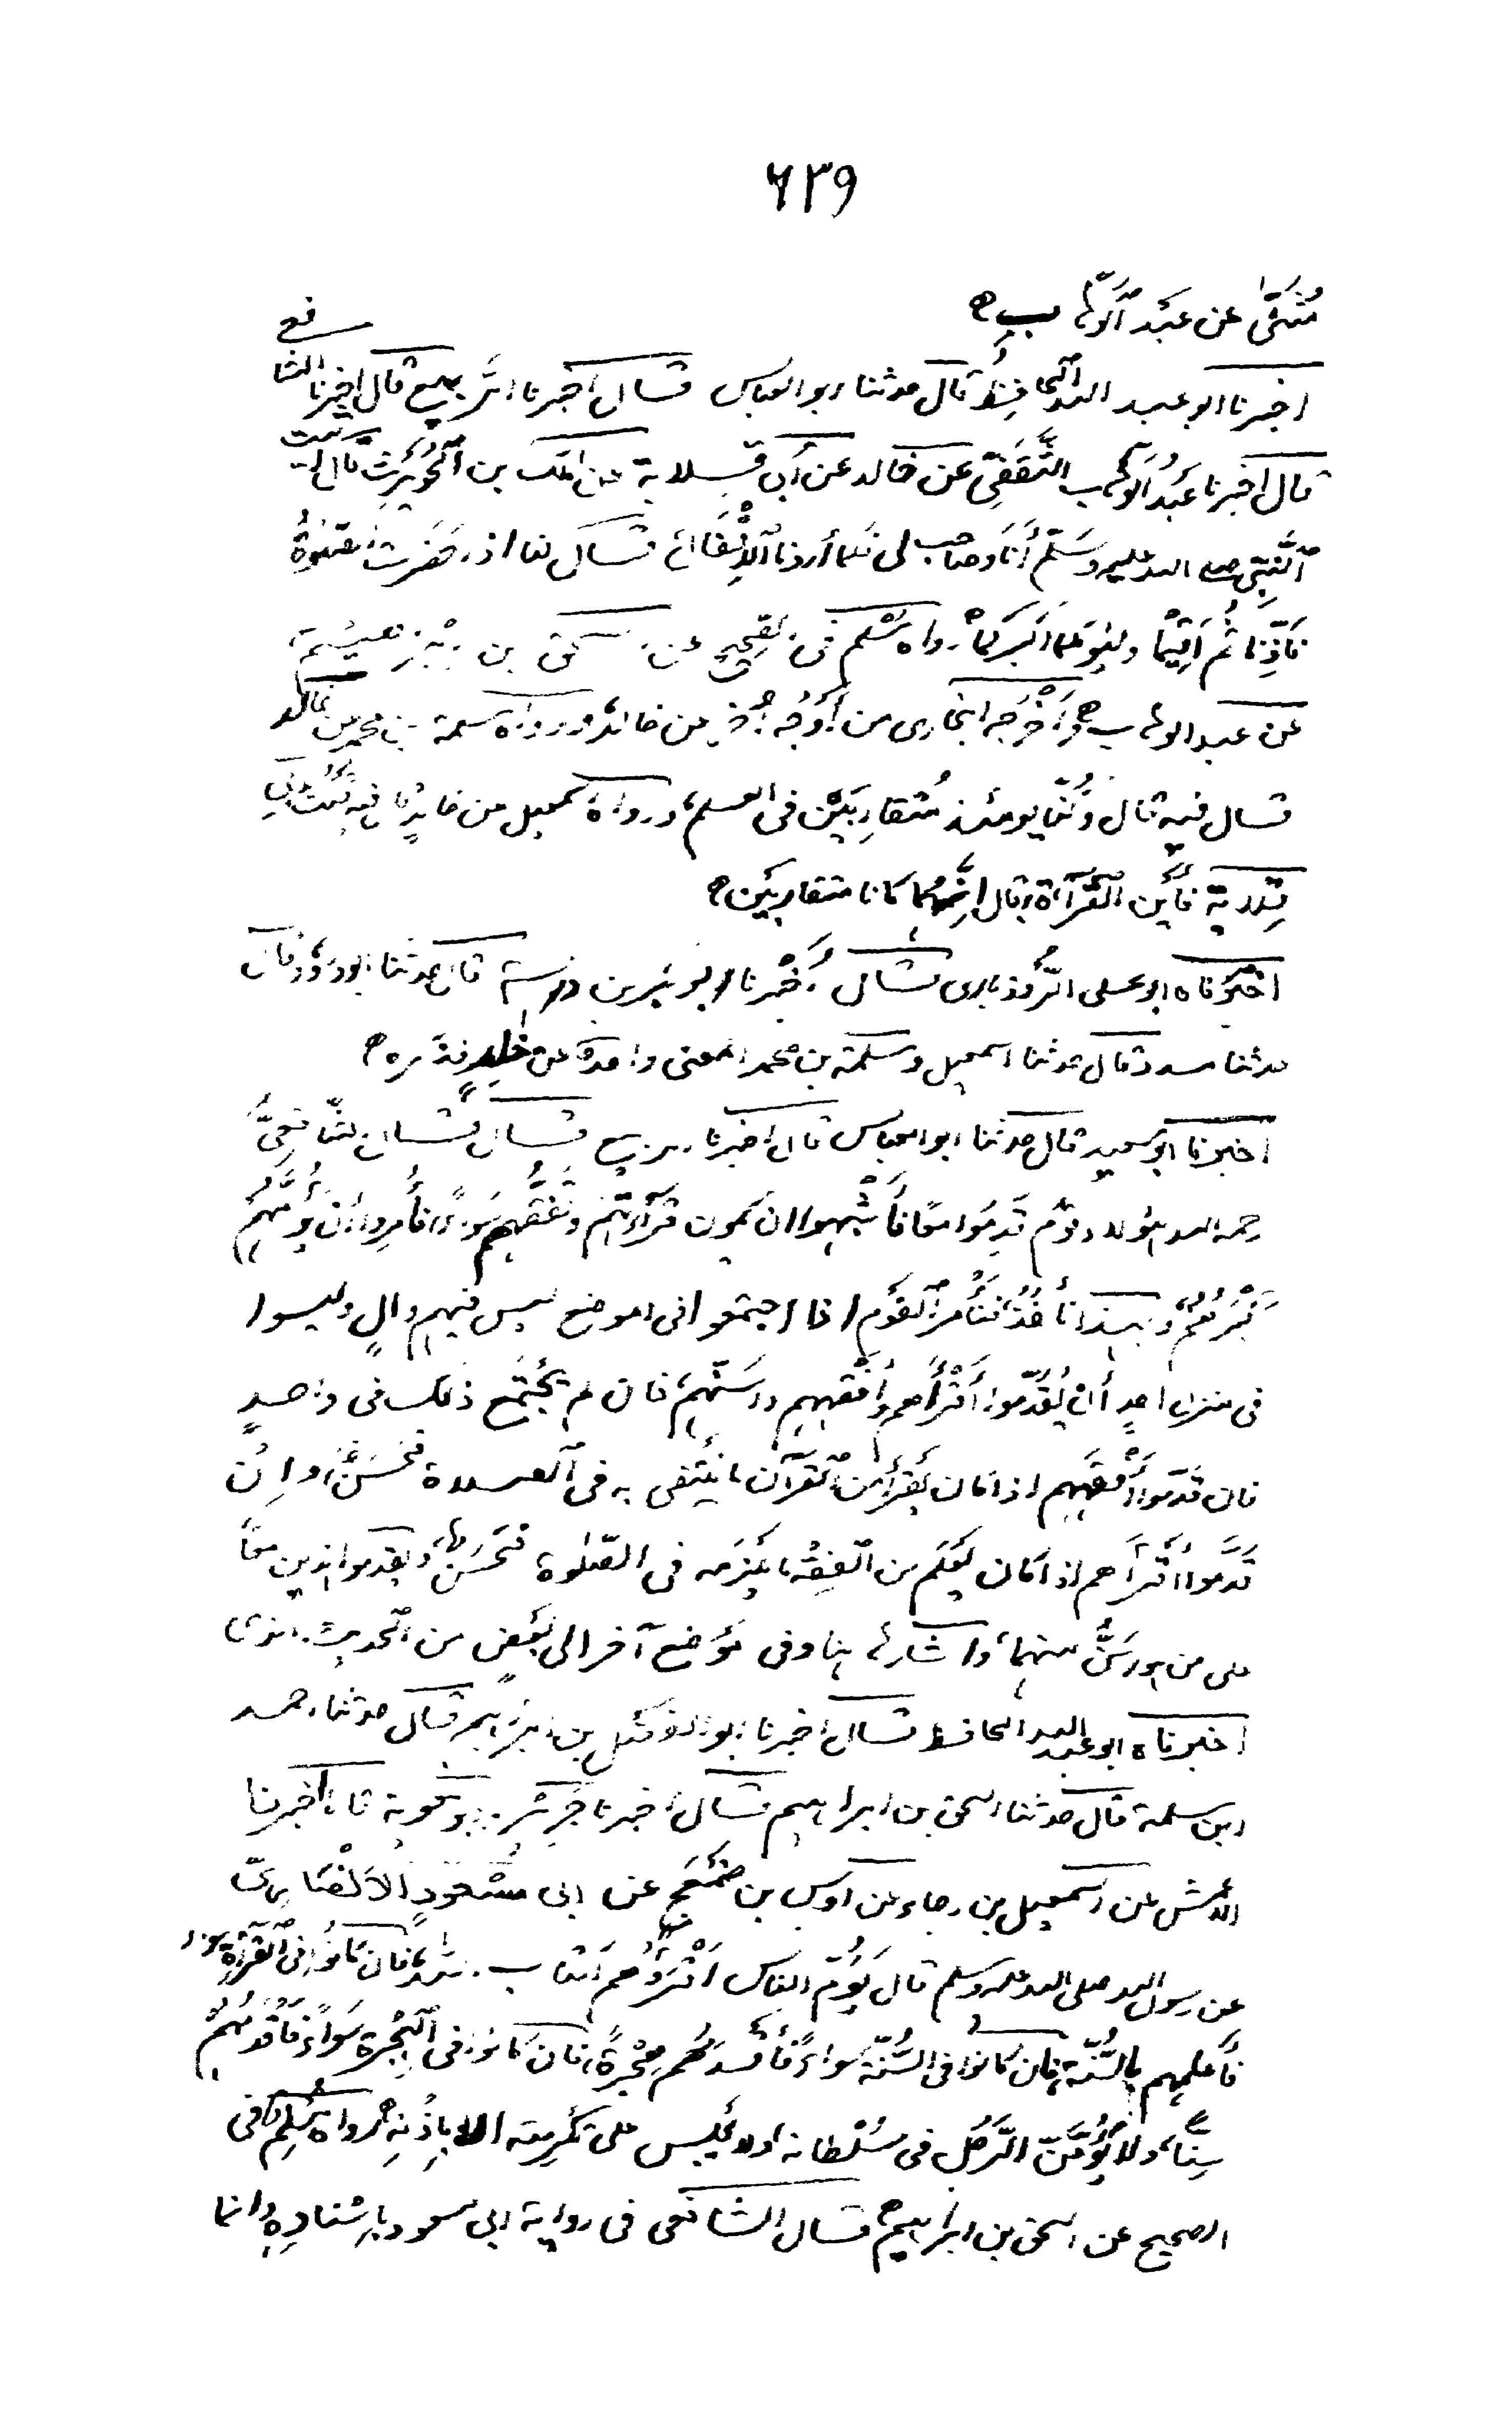 ٦٣٩
مُثَنّٰى عن عَبْد الوَهّاب ه
اخبرنا ابو عبد الله الحافظُ قال حدثنا ابو العباس قال اخبرنا الربيع قال اخبرنا الشافعي
قال اخبرنا عَبْدُ الوَهّاب الثَّقَفِيّ عن خالد عن أبى قلابة عن مالك بن الحُوَيْرِث قال اتيت
النَّبِيّ صلى الله عليه وسَلَّم أَنَا وصاحب لى فلما أردنا الاِنْفِقَال قال لنا اذا حضرت الصّلوةُ
فَأَذِّنا ثُمَّ أَقِيْما وليَؤمّكما أكبركما رواه مُسْلم فى الصّحيح عن اسحٰق بن ابرهيم
عن عبد الوهاب ه وَأَخْرَجه البخارى من أَوْجُه أُخر عن خالد ورواه سلمة بن محمد عن خالد
قال فيه قال وكُنّا يومئذ مُتقارِبَيْن فى العلم، ورواه اسمعيل عن خالد قال فيه قُلْتُ لأبي
قلابة فأَيْن القُرْآن قال إِنَّهُما كانا متقاربَيْن ه
اخبَرْناه ابو على الرُّوذبارى قال أَخْبرنا ابو بكر بن داسة قال حدثنا ابو داؤد قال
حدثنا مسدد قال حدثنا اسمعيل وسلمة بن محمد المعنى واحد عن خالدٍ فذكره ه
اخبرنا ابو سعيد قال حدثنا ابو العباس قال اخبرنا الربيع قال قال الشّافعيُّ
رحمه الله هؤلاء قوم قَدِمُوا معًا فأَشْبَهوا ان يكون قراءتهم وتَفَقُّههم سَواءً فأُمِروا أنْ يَؤُمَّهم
أكْبَرُهُمْ، وبهذا نأْخُذُ، فنَأْمُر القَوْم اذا اجتمعوا فى الموضع ليس فيهم والٍ وليسوا
فى منزل احدٍ أَنْ يُقَدِّموا أَقْرأَهم وأفْقههم وأسَنّهم، فان لم يَجْتَمع ذلك فى واحدٍ
فان قَدّموا أَفْقَههم اذا كان يَقْرأُ من القرآن ما يَكْتفى به فى الصلاة فحَسَنٌ، وإنْ
قَدَّموا أقْرأَهم اذا كان يَعْلَم من الفِقْه ما يَلْزَمه فى الصّلوة فحَسَنٌ، ويقدموا هذين معًا
على من هو أسَنُّ منهما، واشار ههنا وفى مَوْضع آخر الى بَعْضٍ من الحديث الذى
اخبرناه ابو عبد الله الحافظ قال اخبرنا ابو الفضل بن ابرٰهيم قال حدثنا احمد
ابن سلمة قال حدثنا اسحٰق بن ابراهيم قال اخبرنا جرير وابو معٰوية قالا اخبرنا
الاعمش عن اسمعيل بن رجاء عن اوس بن ضَمْعَجٍ عن ابى مَسْعودٍ الاَنْصَارِيّ
عن رسول الله صلى الله عليه وسلم قال يَؤُمّ الناس أَقْرَؤُهم لكتاب الله، فان كانوا فى القرآة سواء
فأعلمهم بالسُّنّة، فان كانوا فى السُّنّة سواءً فأقدمهم هِجْرةً، فان كانوا فى الهِجْرة سَواءً فأَقْدمُهُمْ
سِنًّا، ولا يَؤُمَّنّ الرَّجُل فى سُلْطانه، ولا يُجلس على تَكْرِمته الا باِذْنِه ه رواه مُسْلِم فى
الصحيح عن اسحٰق بن ابراهيم ه قال الشافعى فى رواية ابى سعيد باِسْنادِه وانما